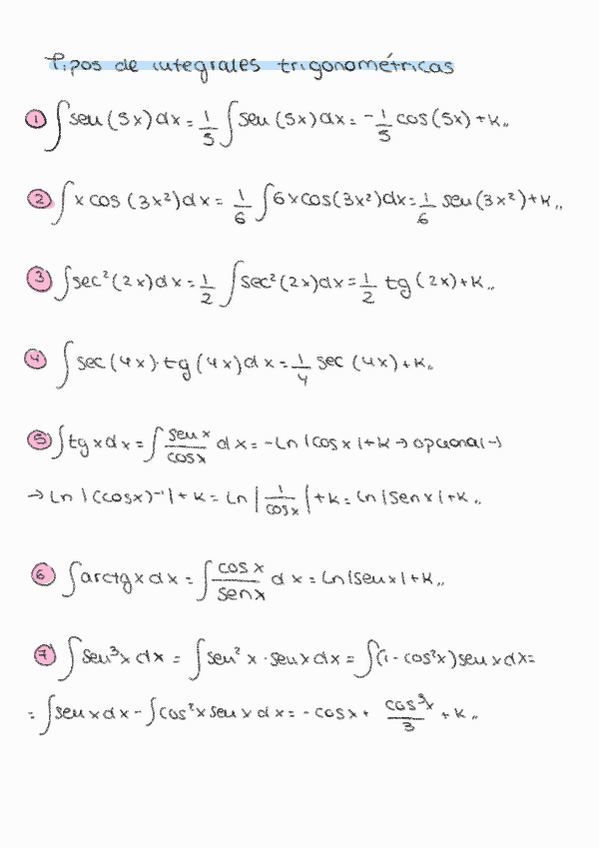 Tipos de integrales trigonométricas
① ∫ sen (5x) dx = 1/5 ∫ sen (5x) dx = - 1/5 cos (5x) + K,,
② ∫ x cos (3x²) dx = 1/6 ∫ 6x cos(3x²) dx = 1/6 sen (3x²) + K,,
③ ∫ sec² (2x) dx = 1/2 ∫ sec² (2x) dx = 1/2 tg (2x) + K,,
④ ∫ sec (4x) · tg (4x) dx = 1/4 sec (4x) + K,,
⑤ ∫ tg x dx = ∫ sen x/cos x dx = - Ln |cos x| + K → opcional →
→ Ln |(cosx)⁻¹| + K = Ln |1/cosx| + K = Ln |Sen x| + K,,
⑥ ∫ arctg x dx = ∫ cos x/sen x dx = Ln |sen x| + K,,
⑦ ∫ sen³x dx = ∫ sen² x · sen x dx = ∫ (1 - cos²x) sen x dx =
= ∫ sen x dx - ∫ cos²x sen x dx = - cos x + cos³x/3 + K,,